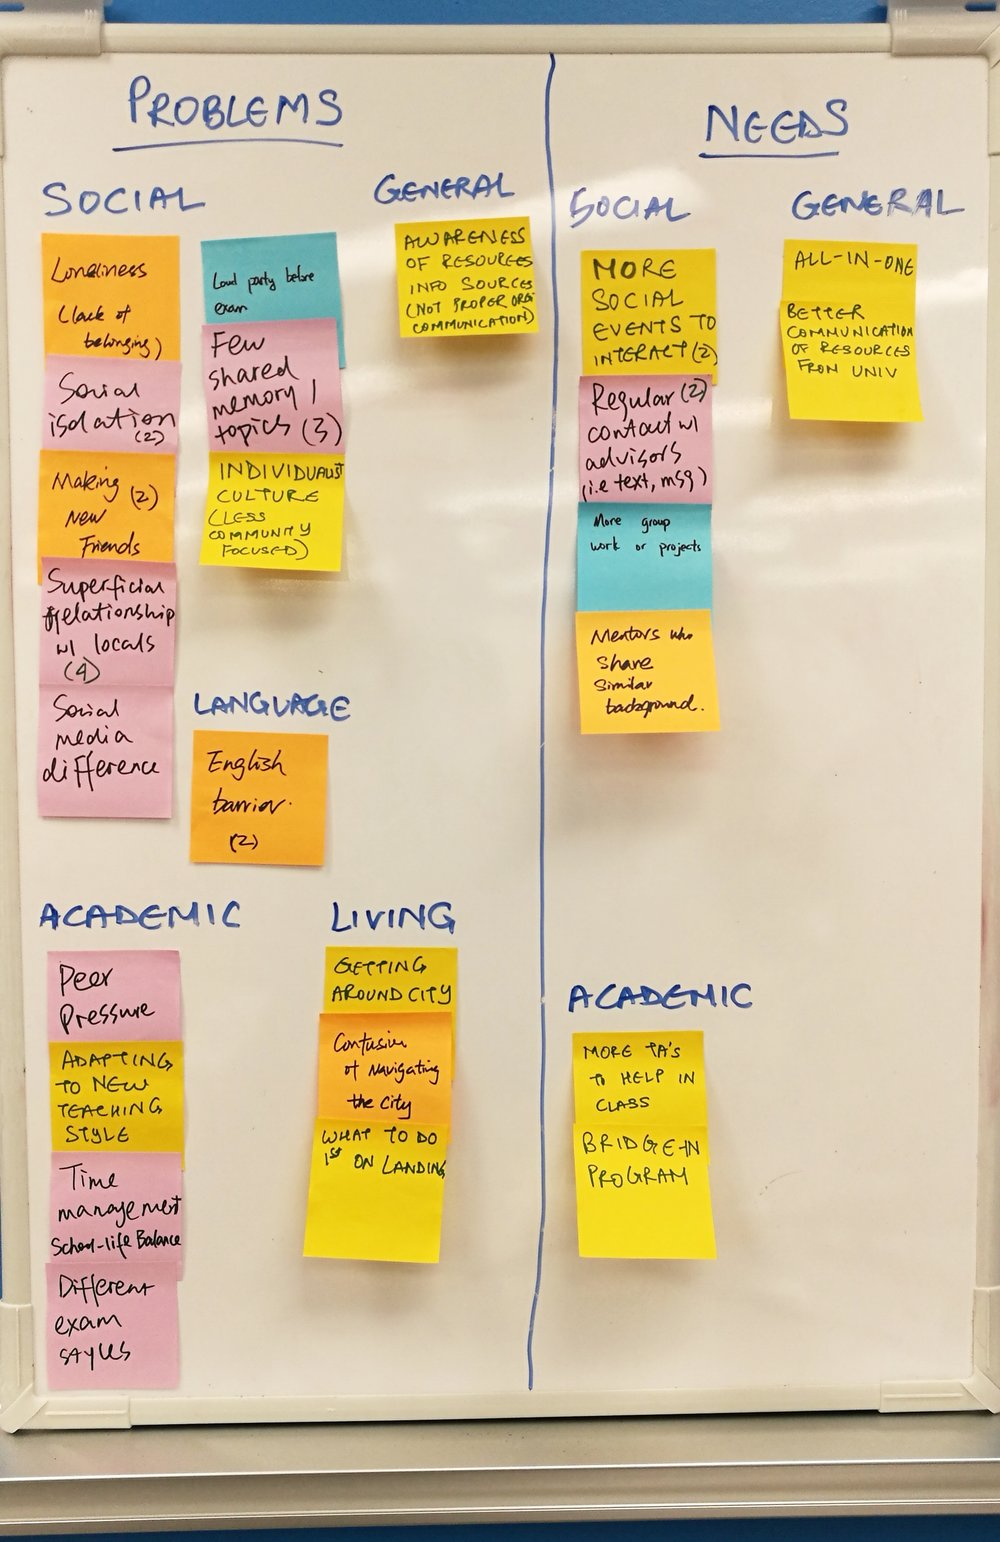 PROBLEMS
SOCIAL
Loneliness
(lack of
belonging)
Social
isolation
(2)
Making (2)
New
Friends
Superficial
relationship
w/ locals
(4)
Social
media
difference
Loud party before
exam
Few
shared
memory /
topics (3)
INDIVIDUALIST
CULTURE
(LESS
COMMUNITY
FOCUSED)
GENERAL
AWARENESS
OF RESOURCES
INFO SOURCES
(NOT PROPER ORG
COMMUNICATION)
LANGUAGE
English
barrier.
(2)
ACADEMIC
Peer
Pressure
ADAPTING
TO NEW
TEACHING
STYLE
Time
management
School-life Balance
Different
exam
LIVING
GETTING
AROUND CITY
Confusion
of Navigating
the City
WHAT TO DO
1st ON LANDING
NEEDS
SOCIAL
MORE
SOCIAL
EVENTS TO
INTERACT (2)
Regular (2)
contact w/
advisors
(i.e text, msg)
More group
work or projects
Mentors who
Share
similar
background.
GENERAL
ALL-IN-ONE
BETTER
COMMUNICATION
OF RESOURCES
FROM UNIV
ACADEMIC
MORE TA'S
TO HELP IN
CLASS
BRIDGE-IN
PROGRAM